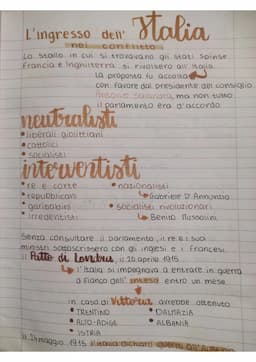 L'ingresso dell' Italia
nel conflitto
Lo stallo in cui si trovavano gli stati spinse
Francia e Inghilterra a rivolgersi all' Italia
la proposta fu accolta
con favore dal presidente del consiglio
Antonio Salandra, ma non tutto
il parlamento era d'accordo.
neutralisti
• liberali giolittiani
• cattolici
• socialisti
interventisti
• re e corte
• nazionalisti
• repubblicani
Gabriele D'Annunzio
• garibaldini
• socialisti rivoluzionari
• irredentisti
Benito Mussolini
Senza consultare il parlamento, il re e i suoi
ministri sottoscrissero con gli inglesi e i francesi
il Patto di Londra, il 26 aprile 1915
l'Italia si impegnava a entrare in guerra
a fianco dell' intesa entro un mese
in caso di vittoria avrebbe ottenuto
• TRENTINO
• DALMAZIA
• ALTO-ADIGE
• ALBANIA
• ISTRIA
maggio 1915 l'Italia dichiarò guerra all'